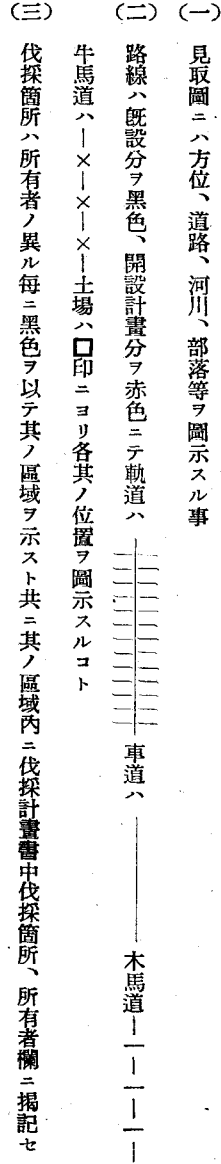 (一) 見取圖ニハ方位、道路、河川、部落等ヲ圖示スル事
(二) 路線ハ旣設分ヲ黑色、開設計畫分ヲ赤色ニテ軌道ハ 車道ハ ――― 木馬道―|―|―|―
牛馬道ハ―×―×―×―土場ハ□印ニヨリ各其ノ位置ヲ圖示スルコト
(三) 伐採箇所ハ所有者ノ異ル每ニ黑色ヲ以テ其ノ區域ヲ示スト共ニ其ノ區域內ニ伐採計畫書中伐採箇所、所有者欄ニ揭記セ